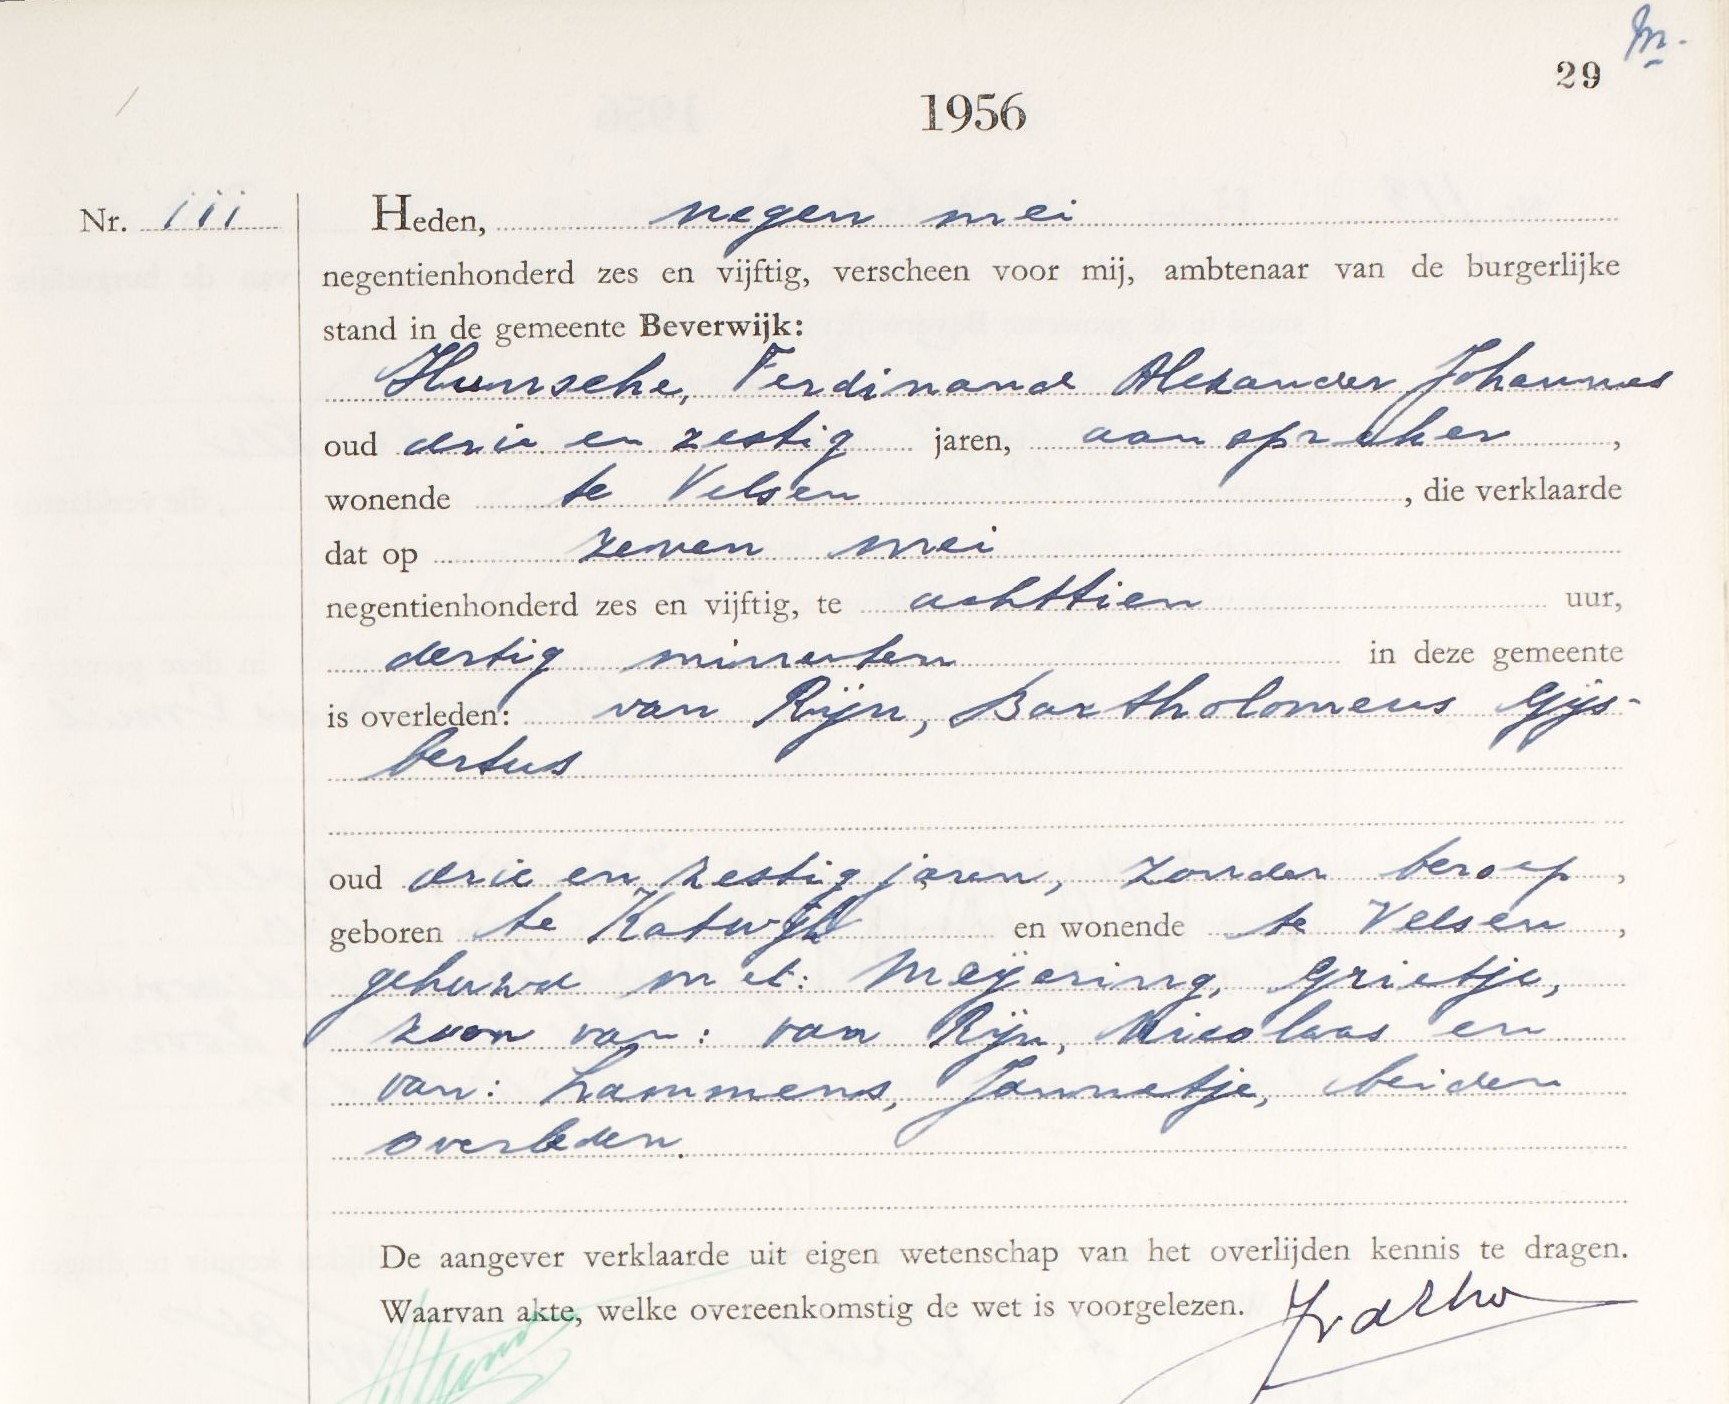 m.
29
1956
Nr. 111
Heden, negen mei
negentienhonderd zes en vijftig, verscheen voor mij, ambtenaar van de burgerlijke
stand in de gemeente Beverwijk:
Hunsche, Ferdinand Alexander Johannes
oud drie en zestig jaren, aanspreker,
wonende te Velsen, die verklaarde
dat op zeven mei
negentienhonderd zes en vijftig, te achttien uur,
dertig minuten in deze gemeente
is overleden: van Rijn, Bartholomeus Gijs-
bertus
oud drie en zestig jaren, zonder beroep,
geboren te Katwijk en wonende te Velsen,
gehuwd met: Meijering, Grietje,
zoon van: van Rijn, Nicolaas en
van: Lammens, Jannetje, beiden
overleden.
De aangever verklaarde uit eigen wetenschap van het overlijden kennis te dragen.
Waarvan akte, welke overeenkomstig de wet is voorgelezen.